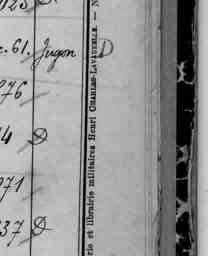 c. 61. Jugon D
976
4 D
971
37 D
rie et librairie militaires Henri CHARLES-LAVAUZELLE — N